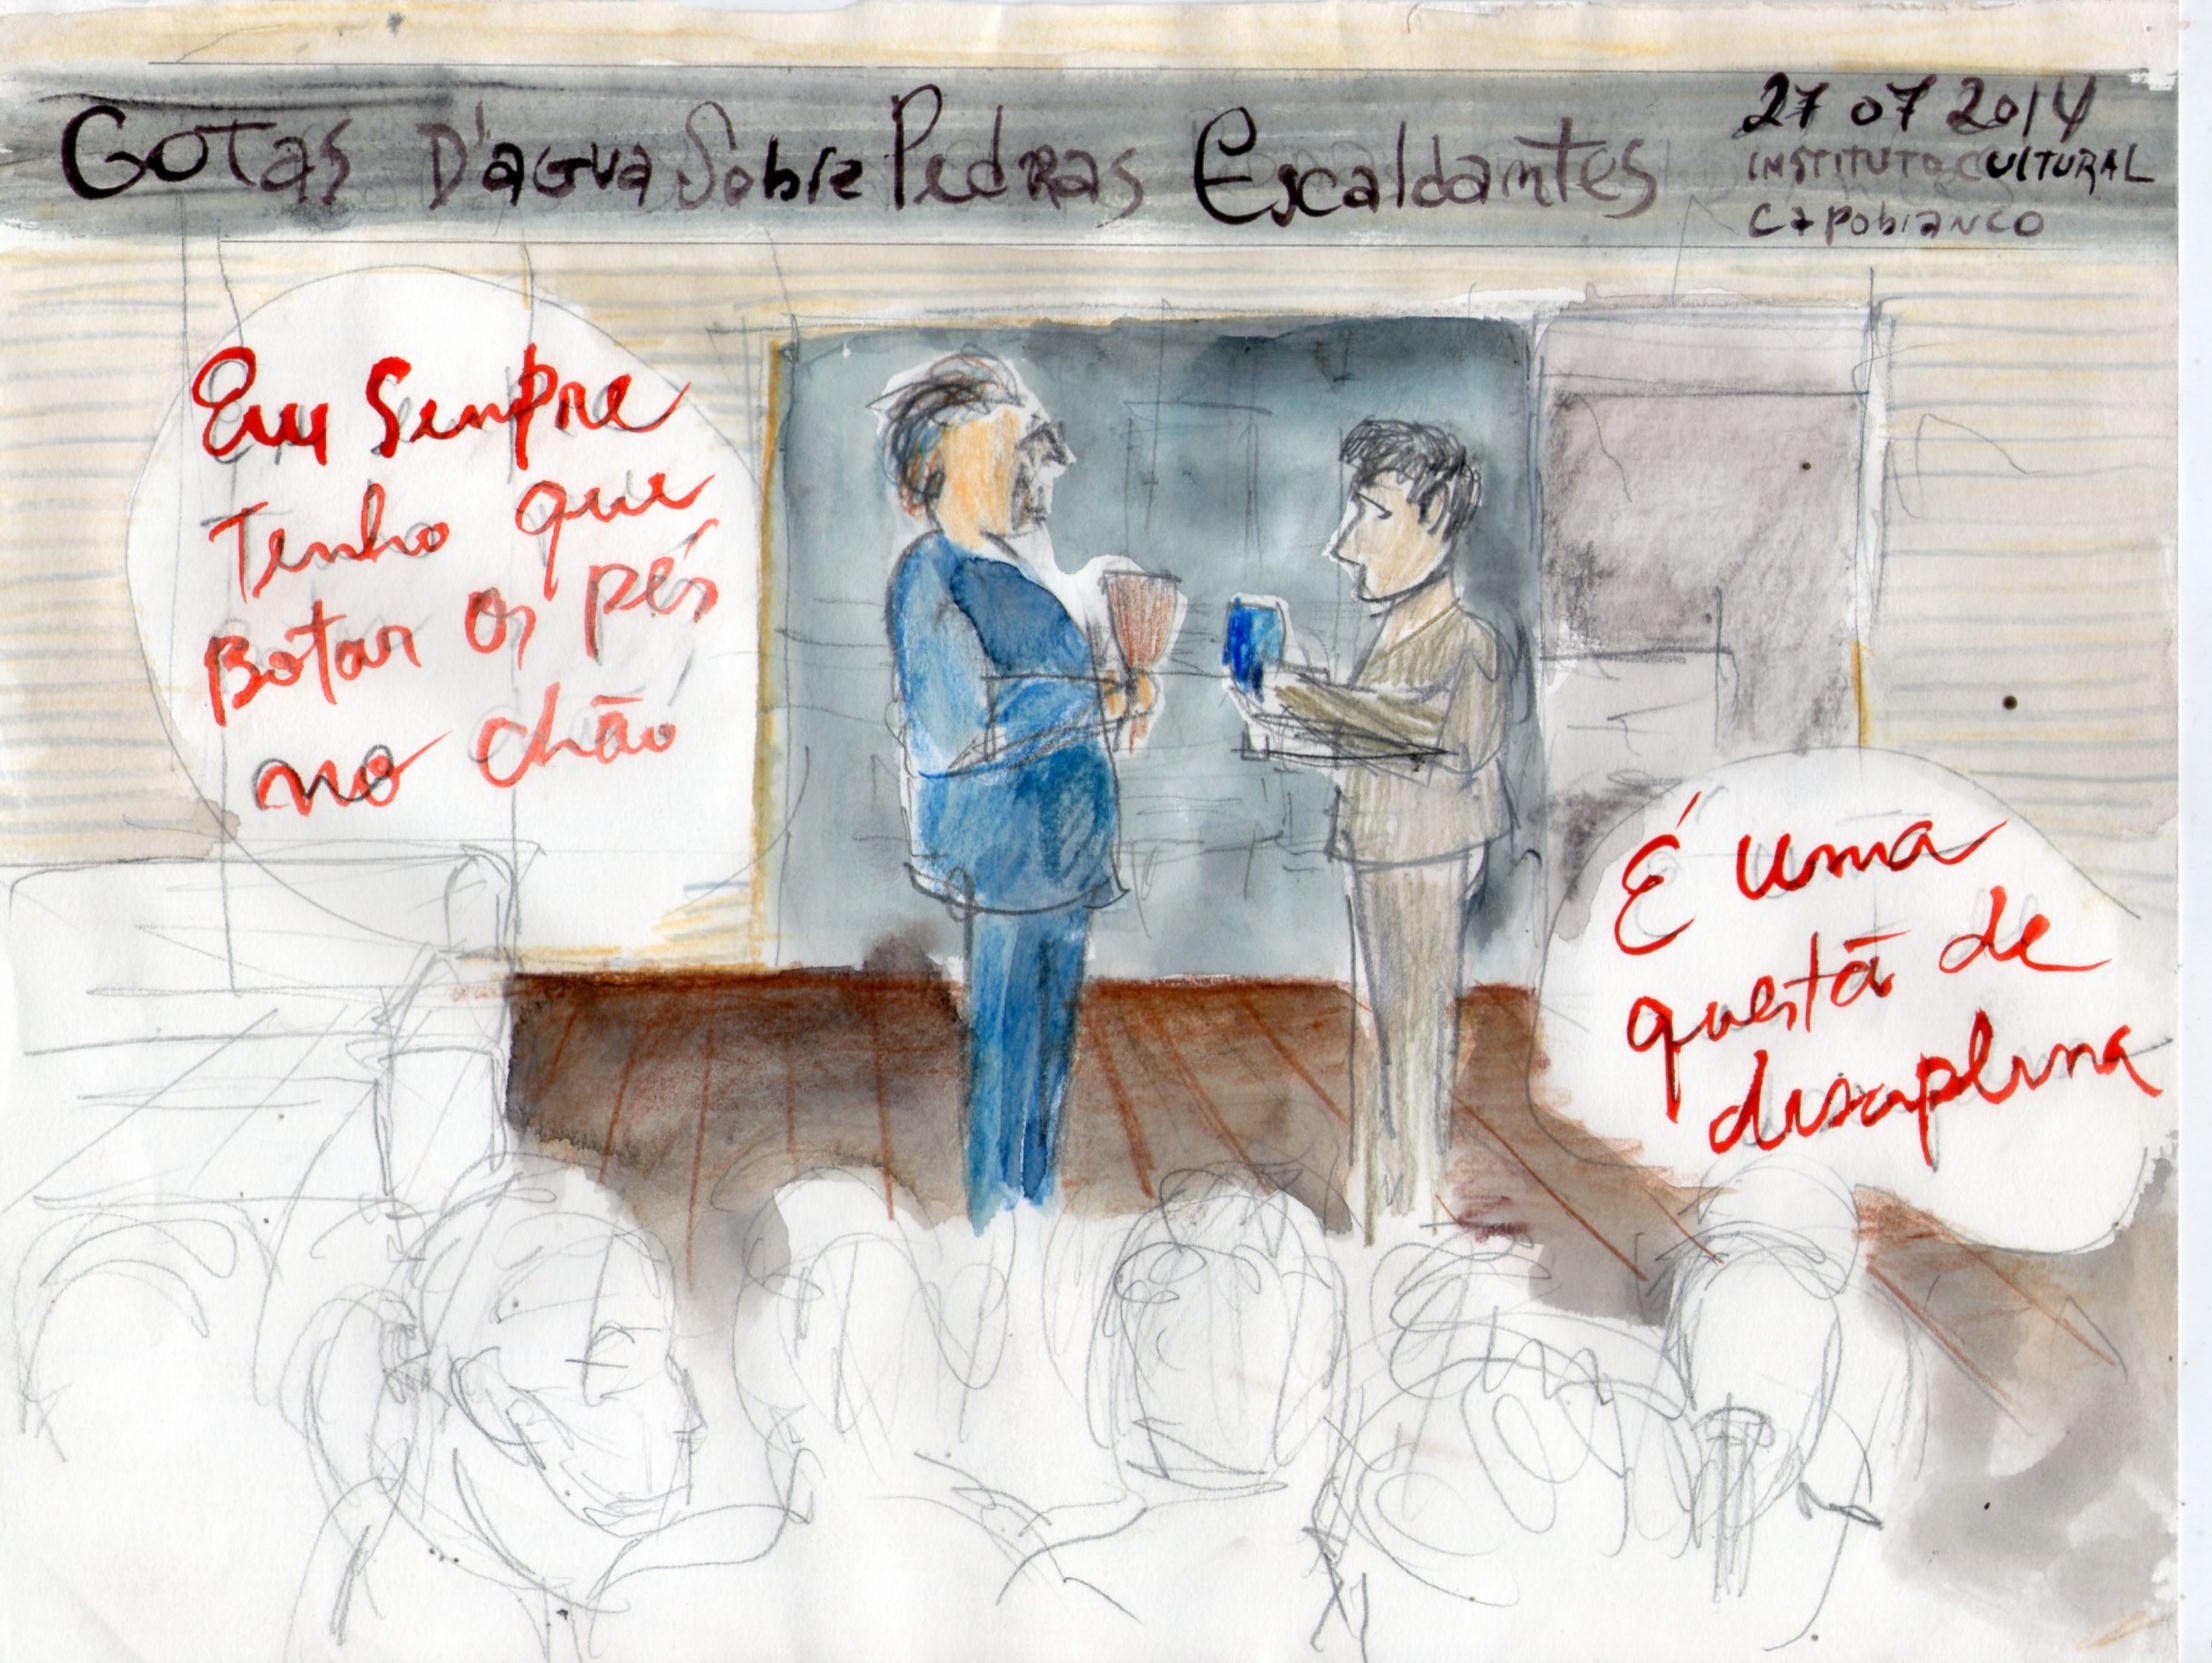 GOTas D'aGua Sobre PedRas Escaldantes
27 07 2014
INSTITUTO CULTURAL
Capobianco
Eu Sempre
Tenho que
Botar os pés
no chão
É uma
questã de
disciplina